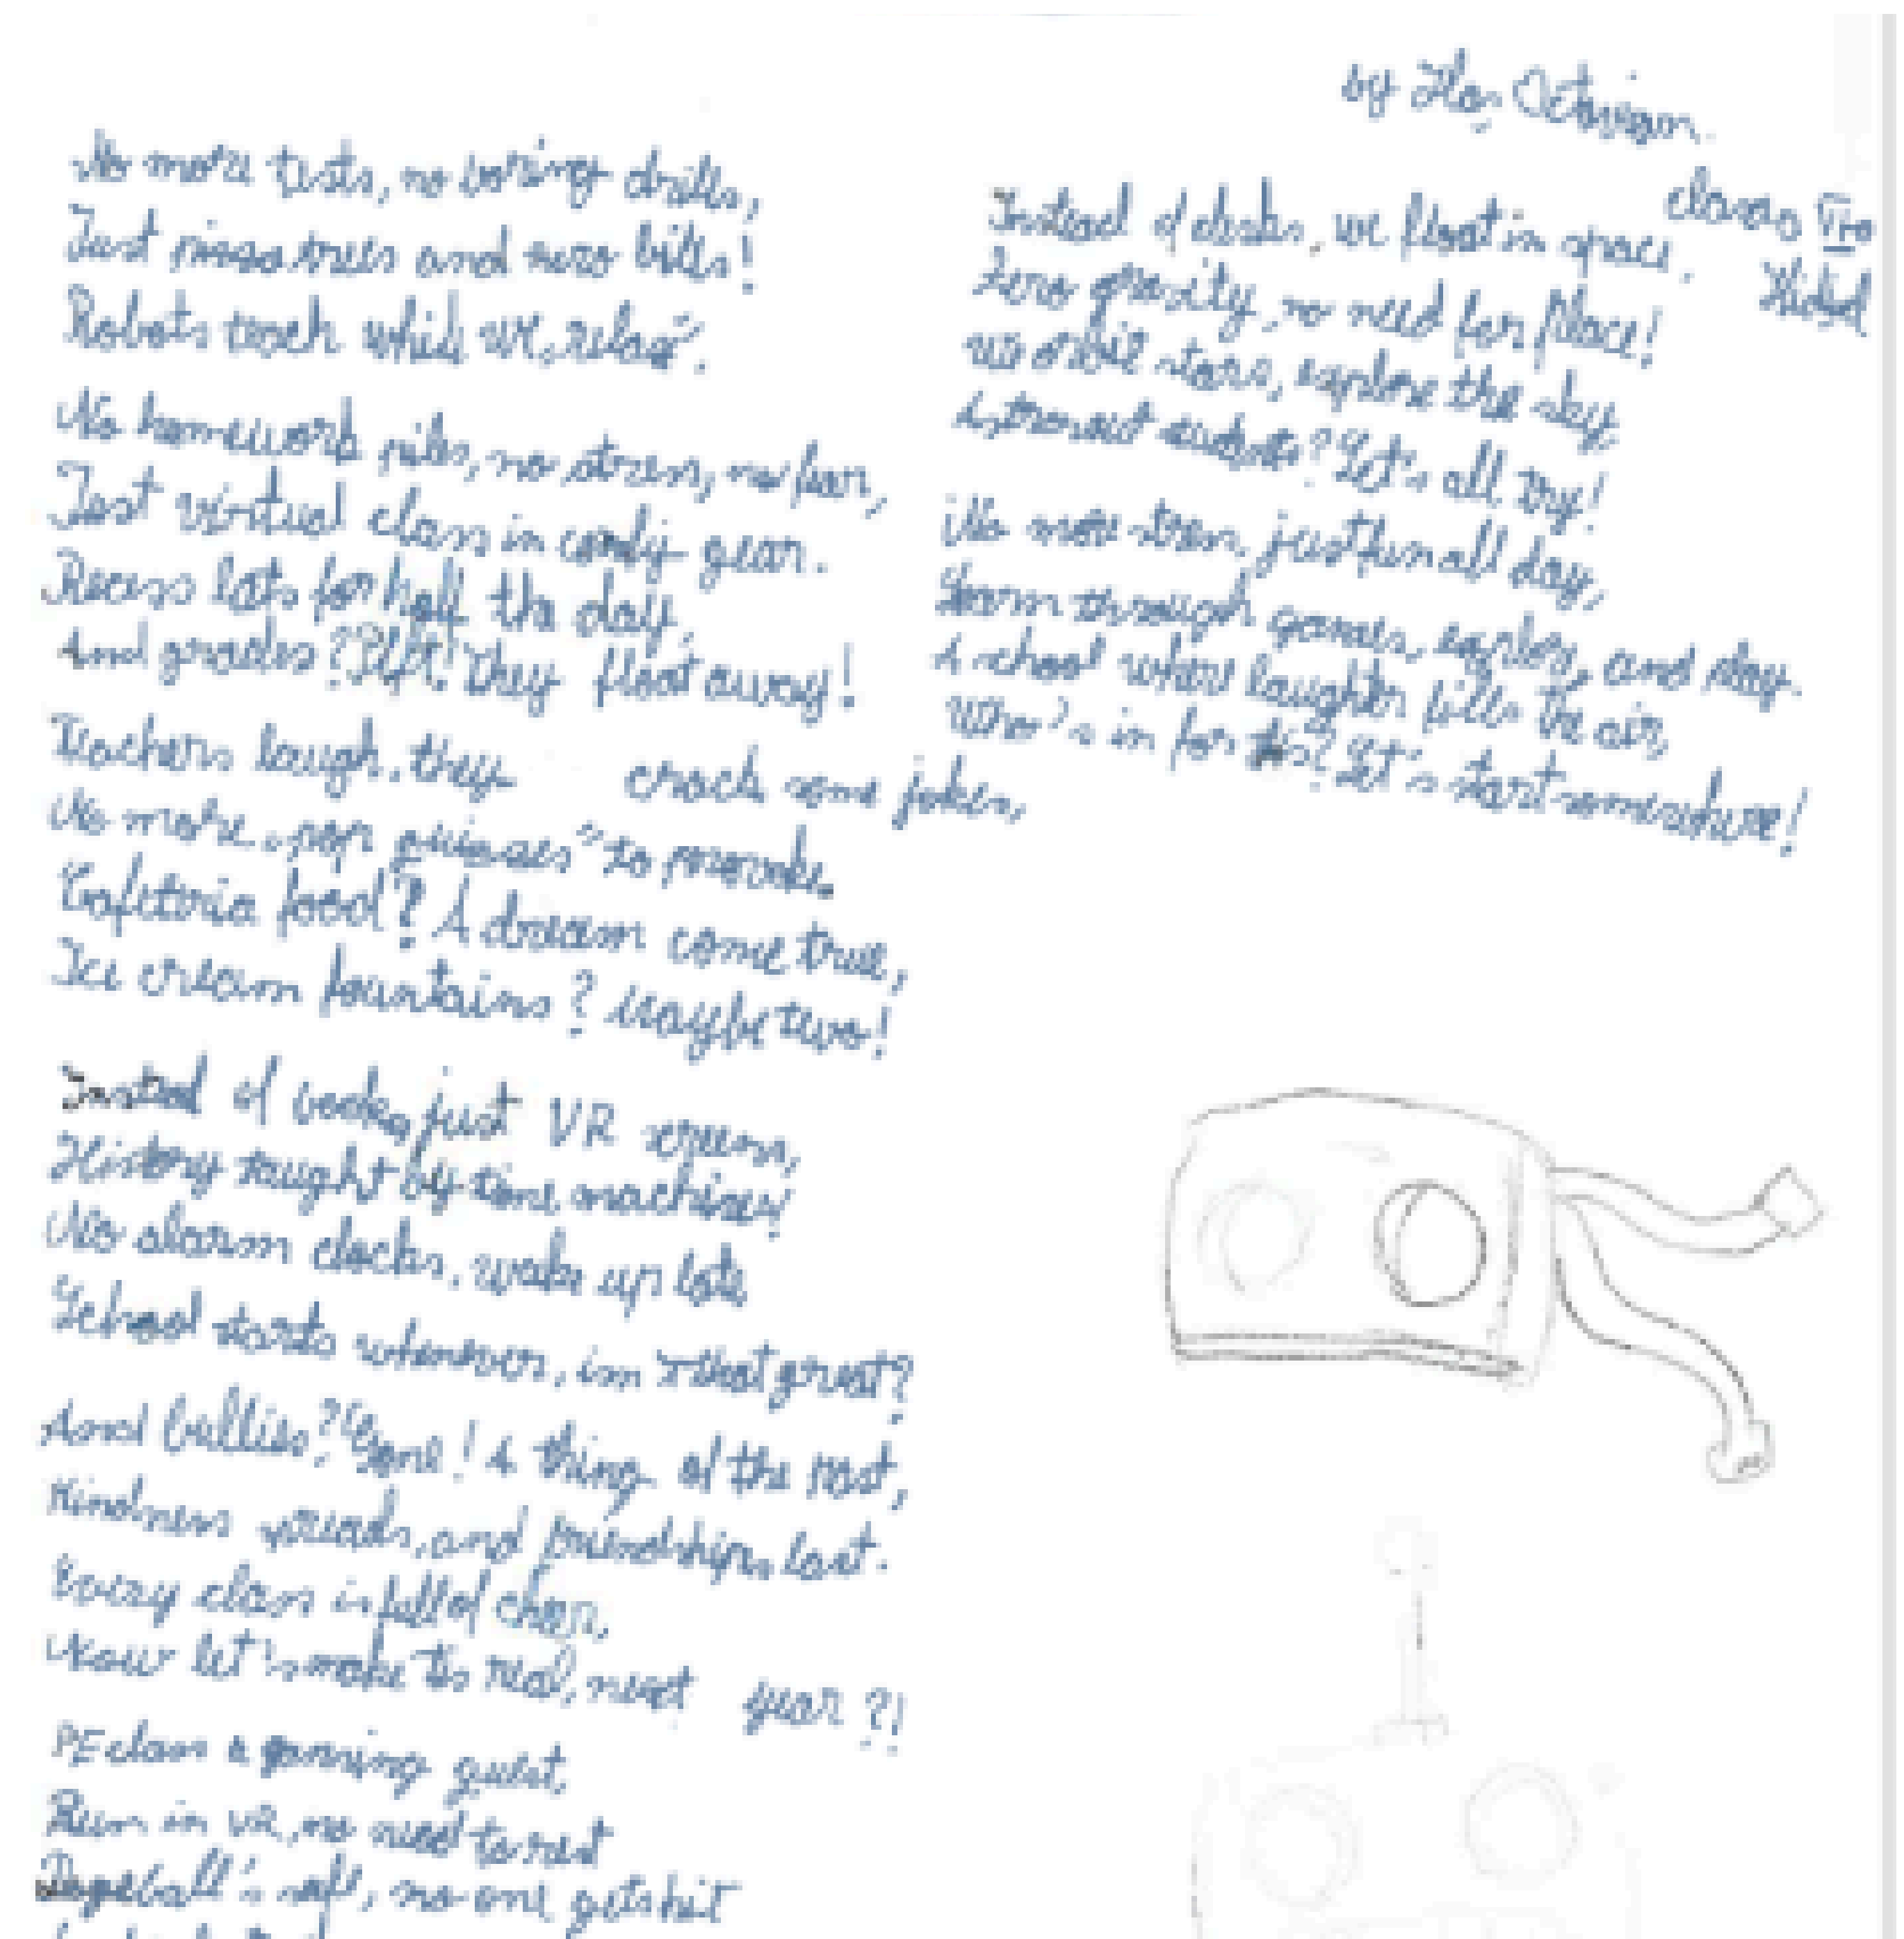 by Ilaș Octavian
class VII a
No more tests, no boring drills,
Just pizza trees and zero bills!
Robots teach while we „relax".
No homework piles, no stress, no fear,
Just virtual class in comfy gear.
Recess lats for half the day,
And grades? Pfft! They float away!
Teachers laugh, they crack some jokes,
No more „pop quizzes" to provoke.
Cafeteria food? A dream come true,
Ice cream fountains? Maybe two!
Instead of books, just VR screens,
History taught by time machines!
No alarm clocks, wake up late
School starts whenever, isn't that great?
And bullies? Gone! A thing of the past,
Kindness spreads, and friendships last.
Every class is full of cheer,
Now let's make this real, next year?!
PE class a gaming quest,
Run in VR, no need to rest
Dogeball's soft, no one gets hit
Instead of desks, we float in space,
Zero gravity, no need for place!
We orbit stars, explore the sky,
Astronaut students? Let's all try!
No more stress, just fun all day,
Learn through games, explore, and play.
A school where laughter fills the air,
Who's in for this? Let's start somewhere!